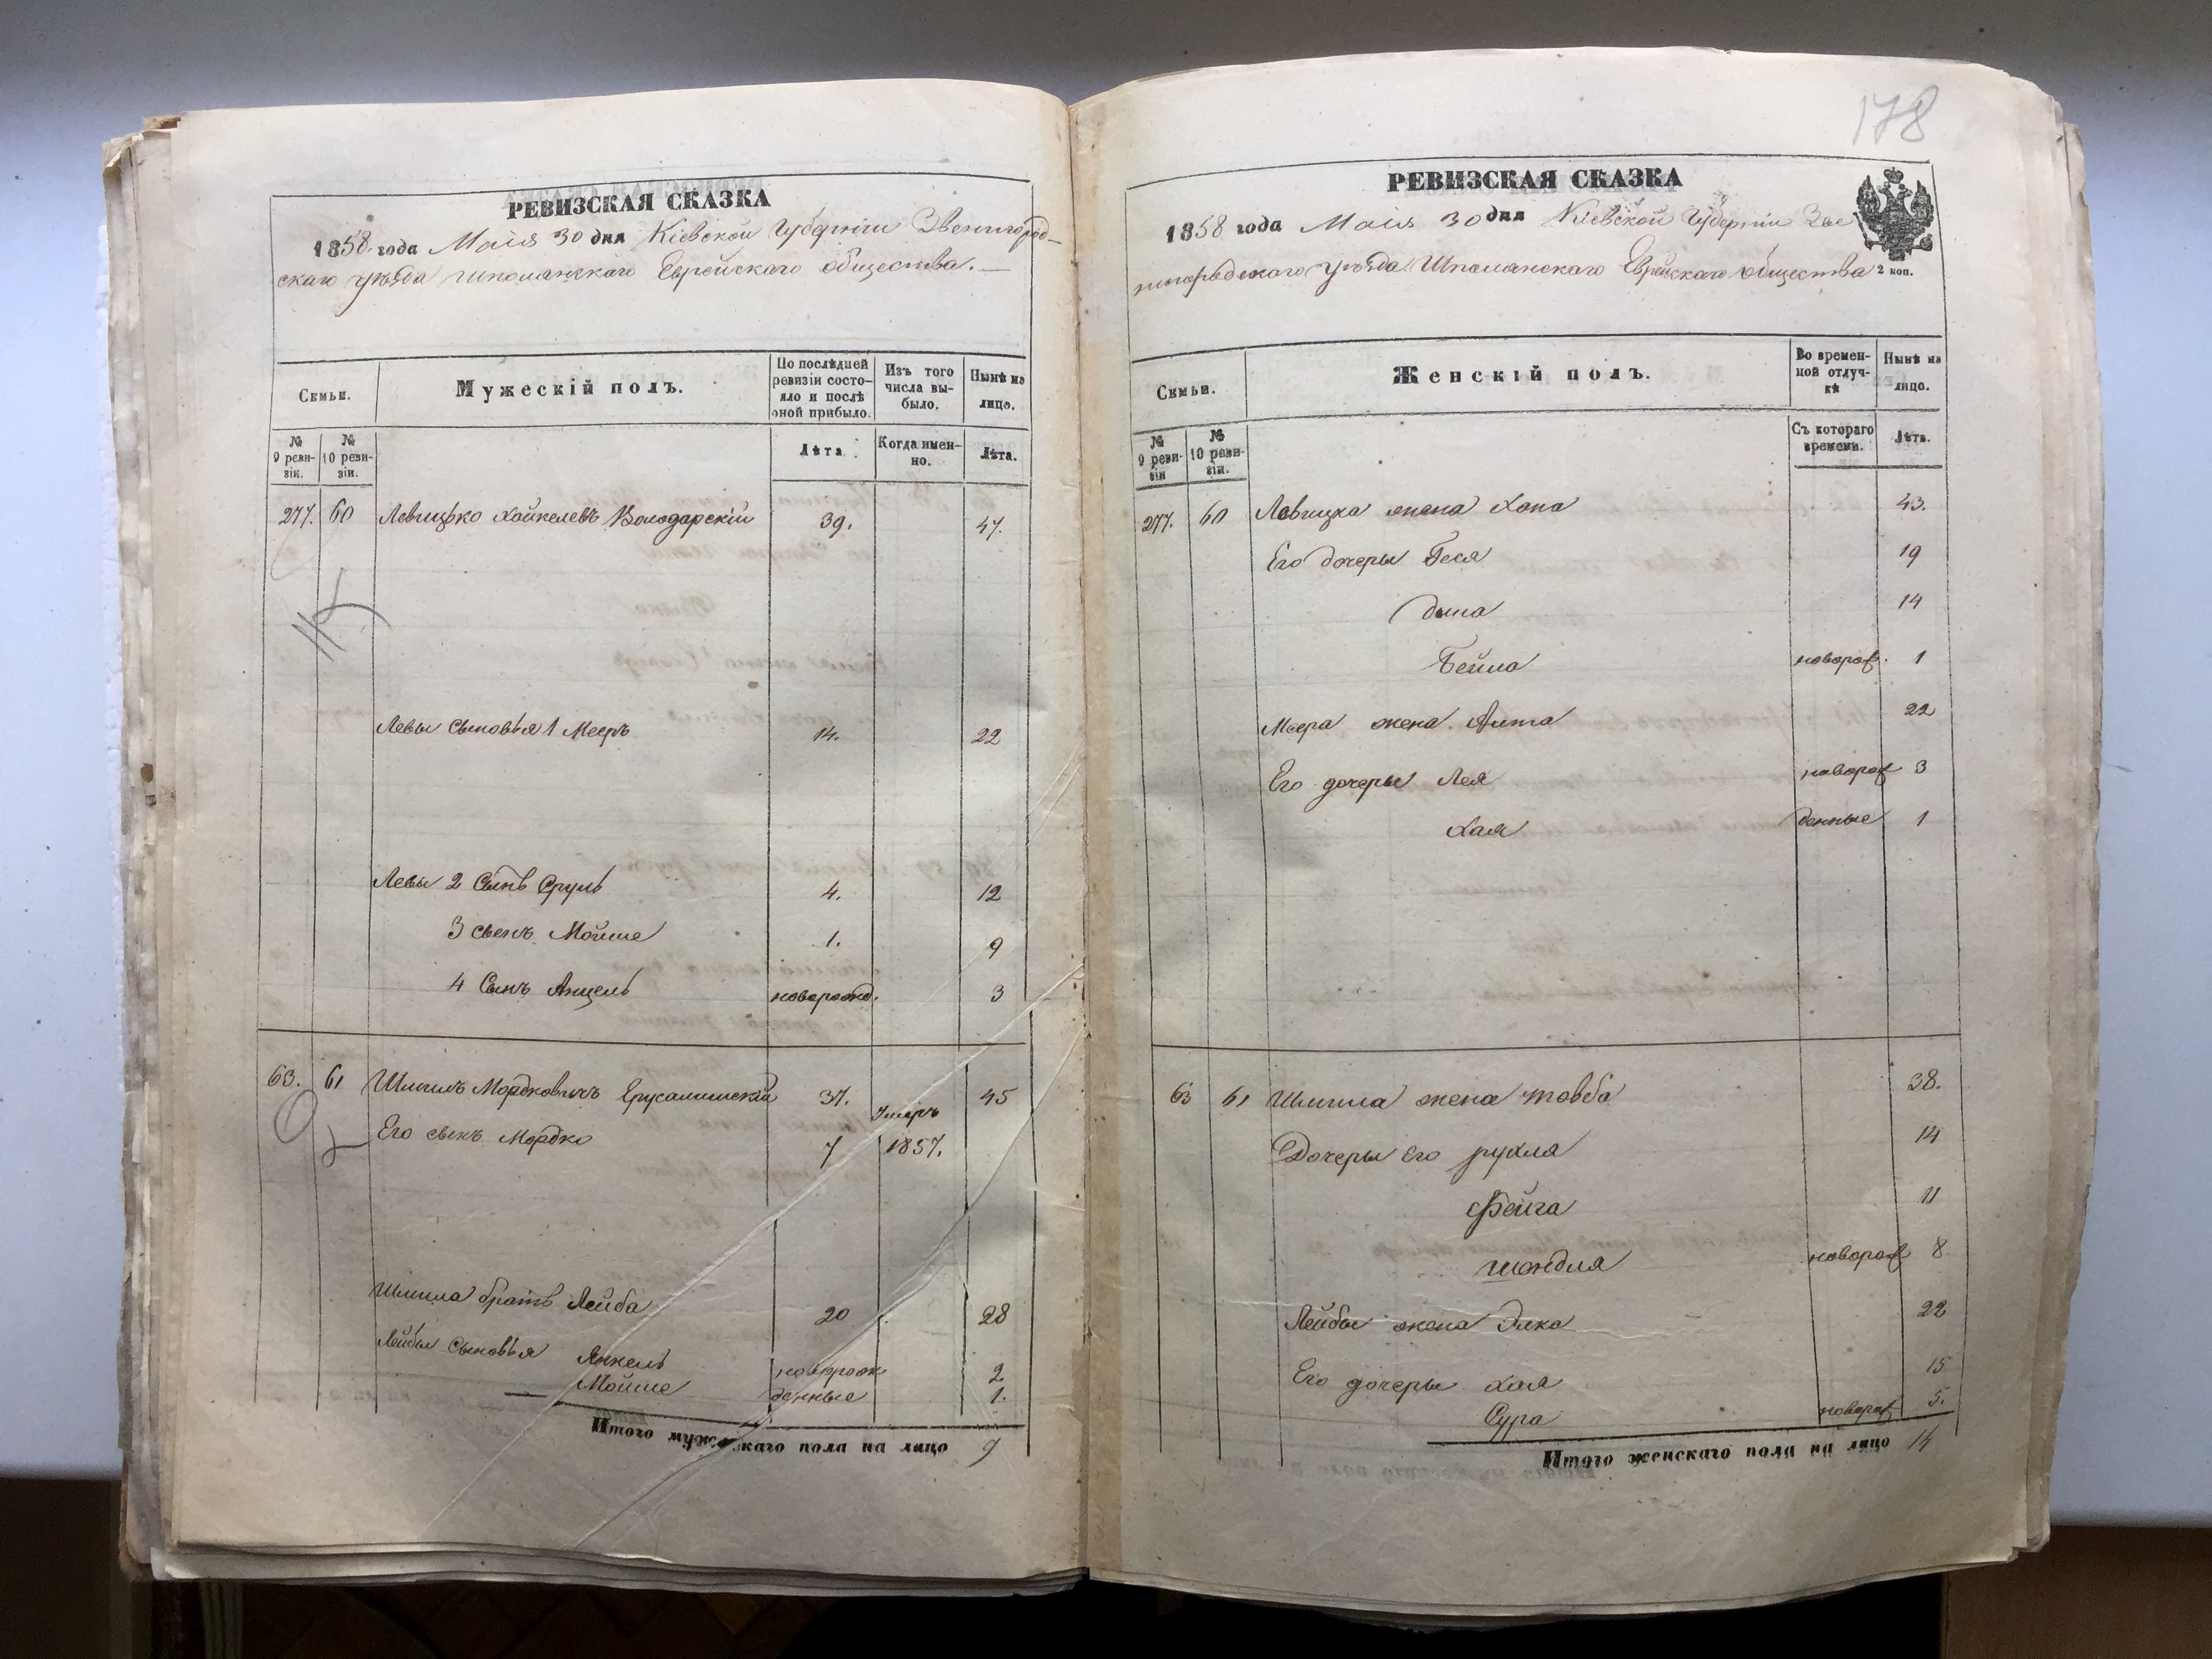 РЕВИЗСКАЯ СКАЗКА
1858 года Маія 30 дня Кіевской Губерніи Звенигород-
скаго уѣзда шполанскаго Еврейскаго общества.—
Семьи.
Мужескій полъ.
По послѣдней ревизіи состояло и послѣ оной прибыло.
Изъ того числа выбыло.
Нынѣ на лицо.
№ 9 ревизіи.
№ 10 ревизіи.
Лѣта
Когда именно.
Лѣта.
277. 60 Левицько Хайкелевъ Володарскій 39. 47.
Левы Сыновья 1 Мееръ 14. 22
Левы 2 Сынъ Сруль 4. 12
3 сынъ Мойше 1. 9
4 Сынъ Анцель новорожд. 3
63. 61 Шмилъ Мордковичъ Ерусалимскій 37. 45
Его сынъ Мордко 7 Умеръ 1857.
Шмила братъ Лейба 20 28
Лейбы Сыновья Янкель новорож 2
Мойше денные 1.
Итого мужескаго пола на лицо 9
178
РЕВИЗСКАЯ СКАЗКА
1858 года Маія 30 дня Кіевской Губерніи Зве
нигородскаго уѣзда Шполанскаго Еврейскаго общества
2 коп.
Семьи.
Женскій полъ.
Во временной отлучкѣ
Нынѣ на лицо.
№ 9 ревизіи
№ 10 ревизіи.
Съ котораго времени.
Лѣта.
277. 60 Левицка жена Хана 43.
Его дочеры Геся 19
дина 14
Бейла новорож. 1
Меера жена Анта 22
Его дочеры Лея новорож 3
Хая денные 1
63 61 Шмила жена товба 38.
Дочеры Его рухля 14
Фейга 11
шендля новорож 8
Лейбы жена Элка 22
Его дочеры Хая 15
Сура новорож 5.
Итого женскаго пола на лицо 14